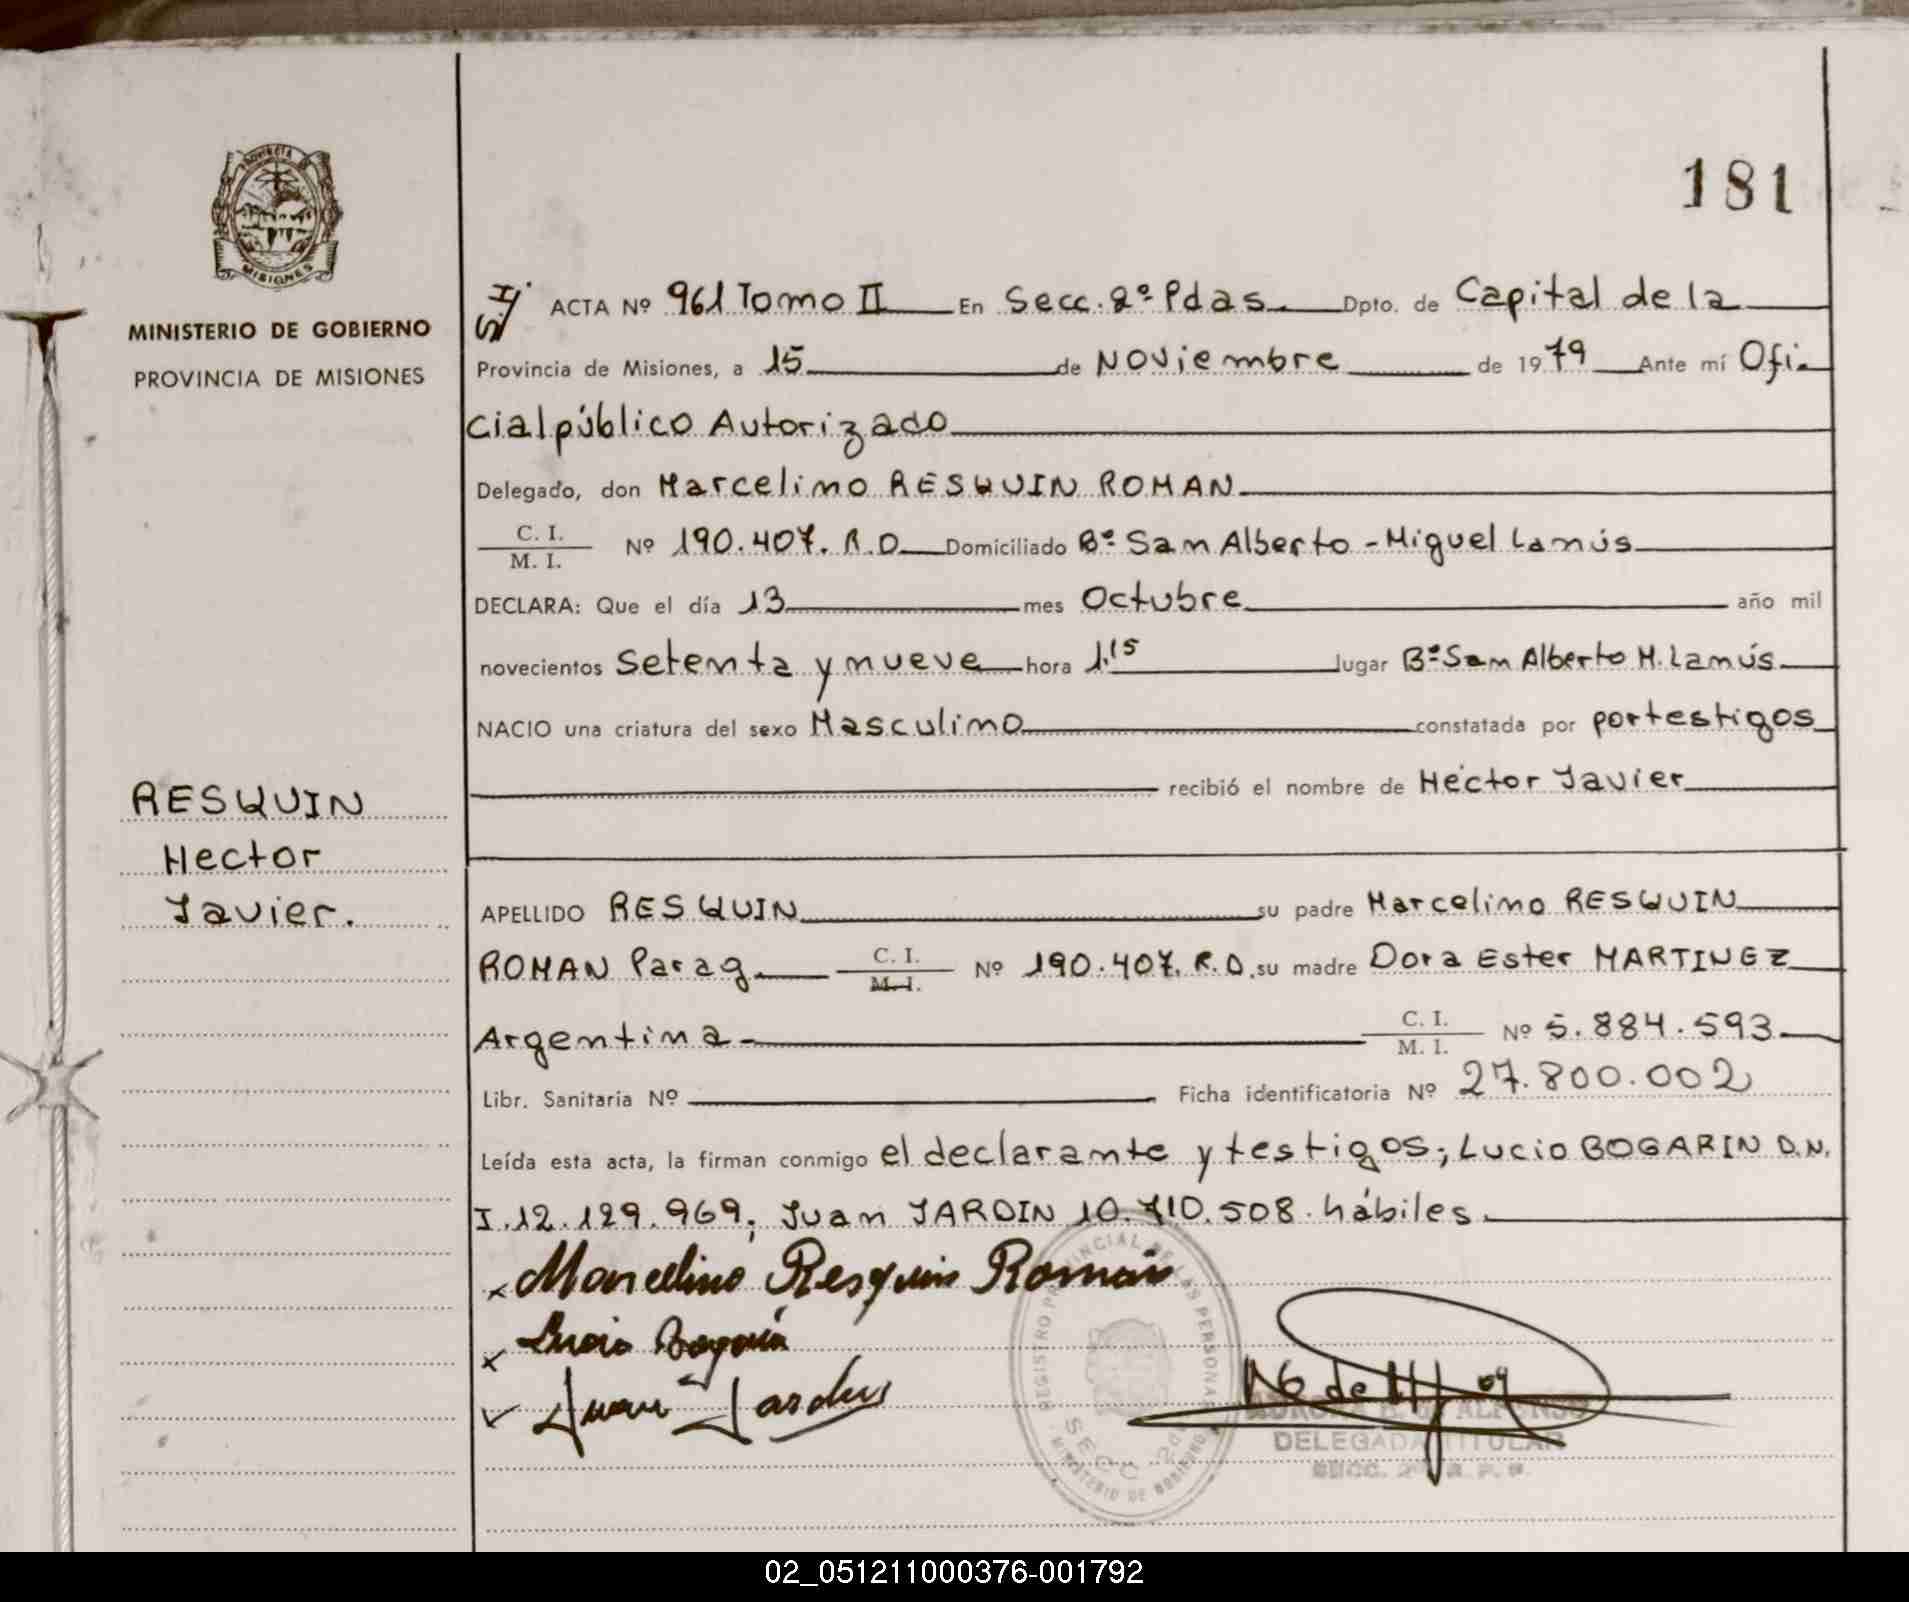 181
PROVINCIA DE
MISIONES
MINISTERIO DE GOBIERNO
PROVINCIA DE MISIONES
S.I/ ACTA Nº 961 Tomo II En Secc. 2º Pdas. Dpto. de Capital de la
Provincia de Misiones, a 15 de Noviembre de 1979 Ante mí Ofi-
cial público Autorizado
Delegado, don Marcelino RESQUIN ROMAN
C. I.
M. I. Nº 190.407. R.D Domiciliado Bº San Alberto - Miguel Lanús
DECLARA: Que el día 13 mes Octubre año mil
novecientos Setenta y nueve hora 1.15 lugar Bº San Alberto M. Lanús
NACIO una criatura del sexo Masculino constatada por por testigos
recibió el nombre de Héctor Javier
RESQUIN
Hector
Javier.
APELLIDO RESQUIN su padre Marcelino RESQUIN
ROMAN Parag. C. I.
M. I. Nº 190.407. R.D. su madre Dora Ester MARTINEZ
Argentina C. I.
M. I. Nº 5.884.593
Libr. Sanitaria Nº Ficha identificatoria Nº 27.800.002
Leída esta acta, la firman conmigo el declarante y testigos; Lucio BOGARIN D.N.
I. 12.129.969; Juan JARDIN 10.710.508. hábiles.
x Marcelino Resquin Román
x Lucio Bogarin
Juan Jardin
REGISTRO PROVINCIAL DE LAS PERSONAS
SECC. 2da
MINISTERIO DE GOBIERNO
DELEGADA TITULAR
02_051211000376-001792